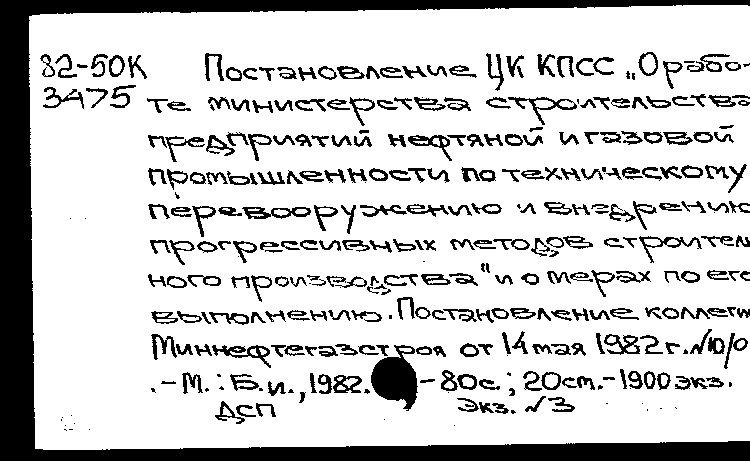 82-50К Постановление ЦК КПСС „О рабо-
3475 те министерства строительства
предприятий нефтяной и газовой
промышленности по техническому
перевооружению и внедрению
прогрессивных методов строитель
ного производства" и о мерах по его
выполнению. Постановление коллеги
Миннефтегазстроя от 14 мая 1982 г. №10/0
.-М.: Б.и., 1982. -80с.; 20см.-1900экз.
ДСП Экз. №3